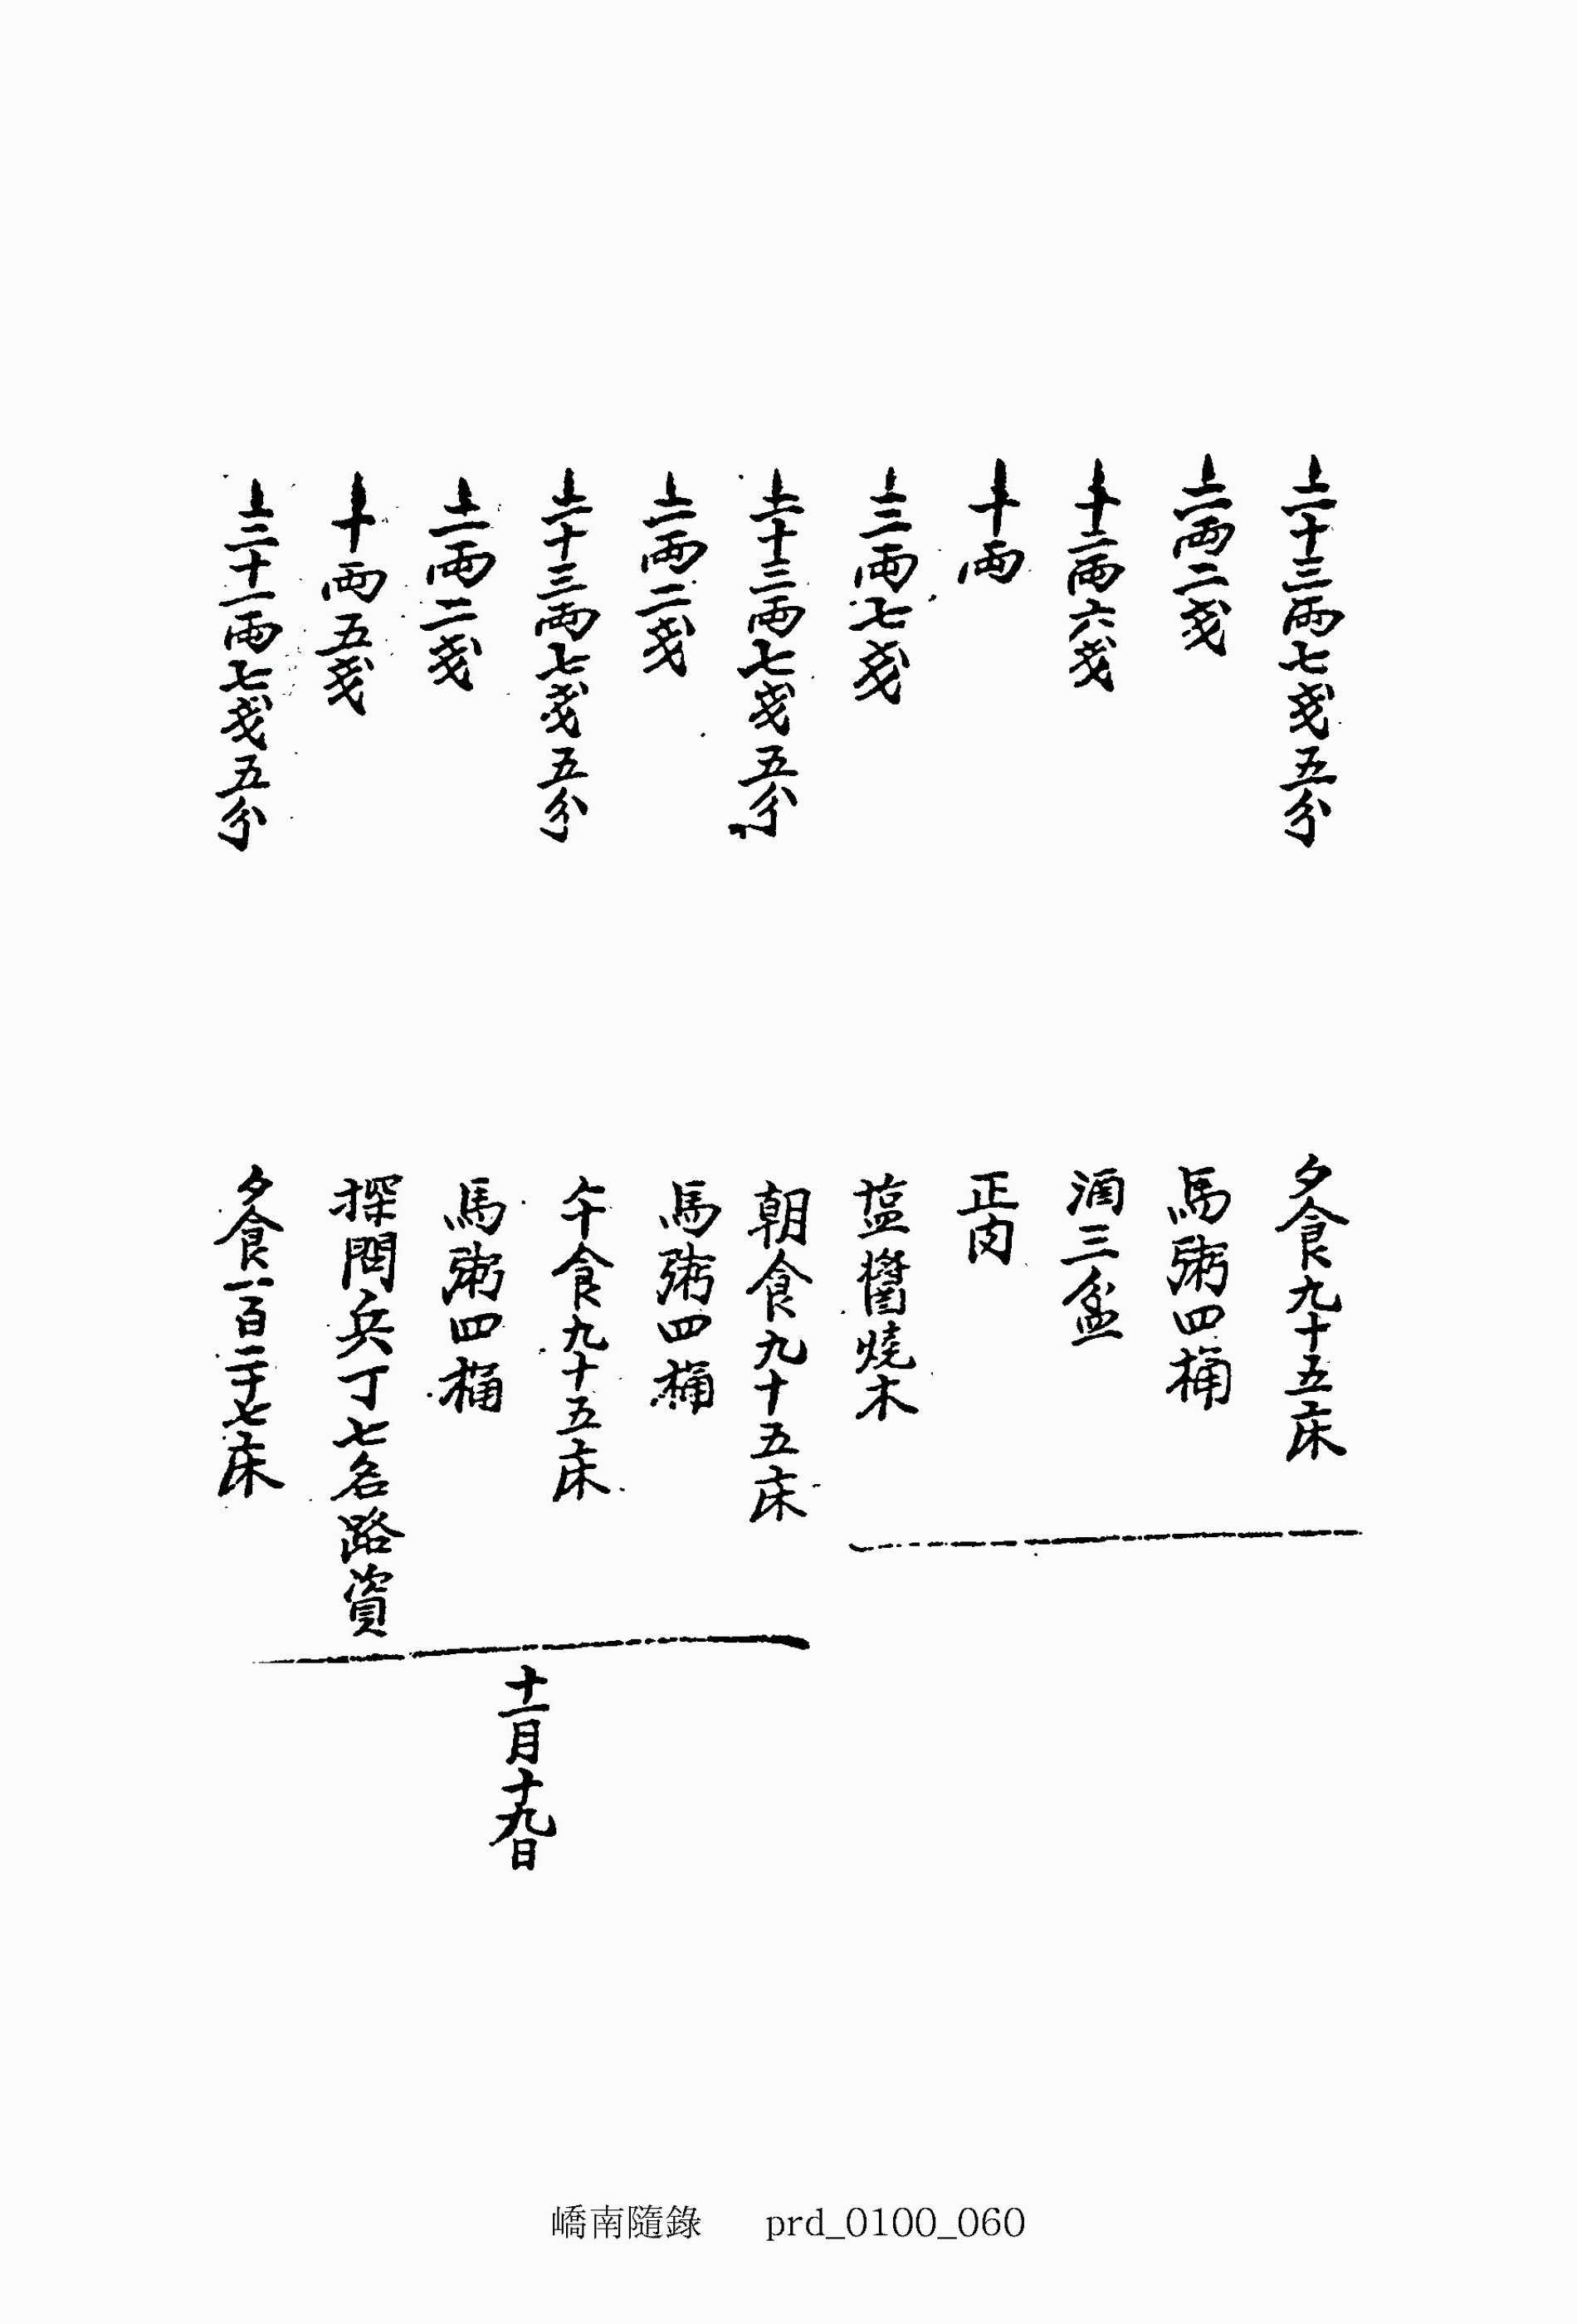 上二十三両七戔五分 夕食九十五床
上二両二戔 馬粥四桶
上十二両六戔 酒三盆
上十両 正肉
上三両七戔 塩醬燒木
上二十三両七戔五分 朝食九十五床
上二両二戔 馬粥四桶
上二十三両七戔五分 午食九十五床
上二両二戔 馬粥四桶
上十両五戔 探問兵丁七名路資
上三十一両七戔五分 夕食一百二十七床
十一月十九日
嶠南隨錄 prd_0100_060